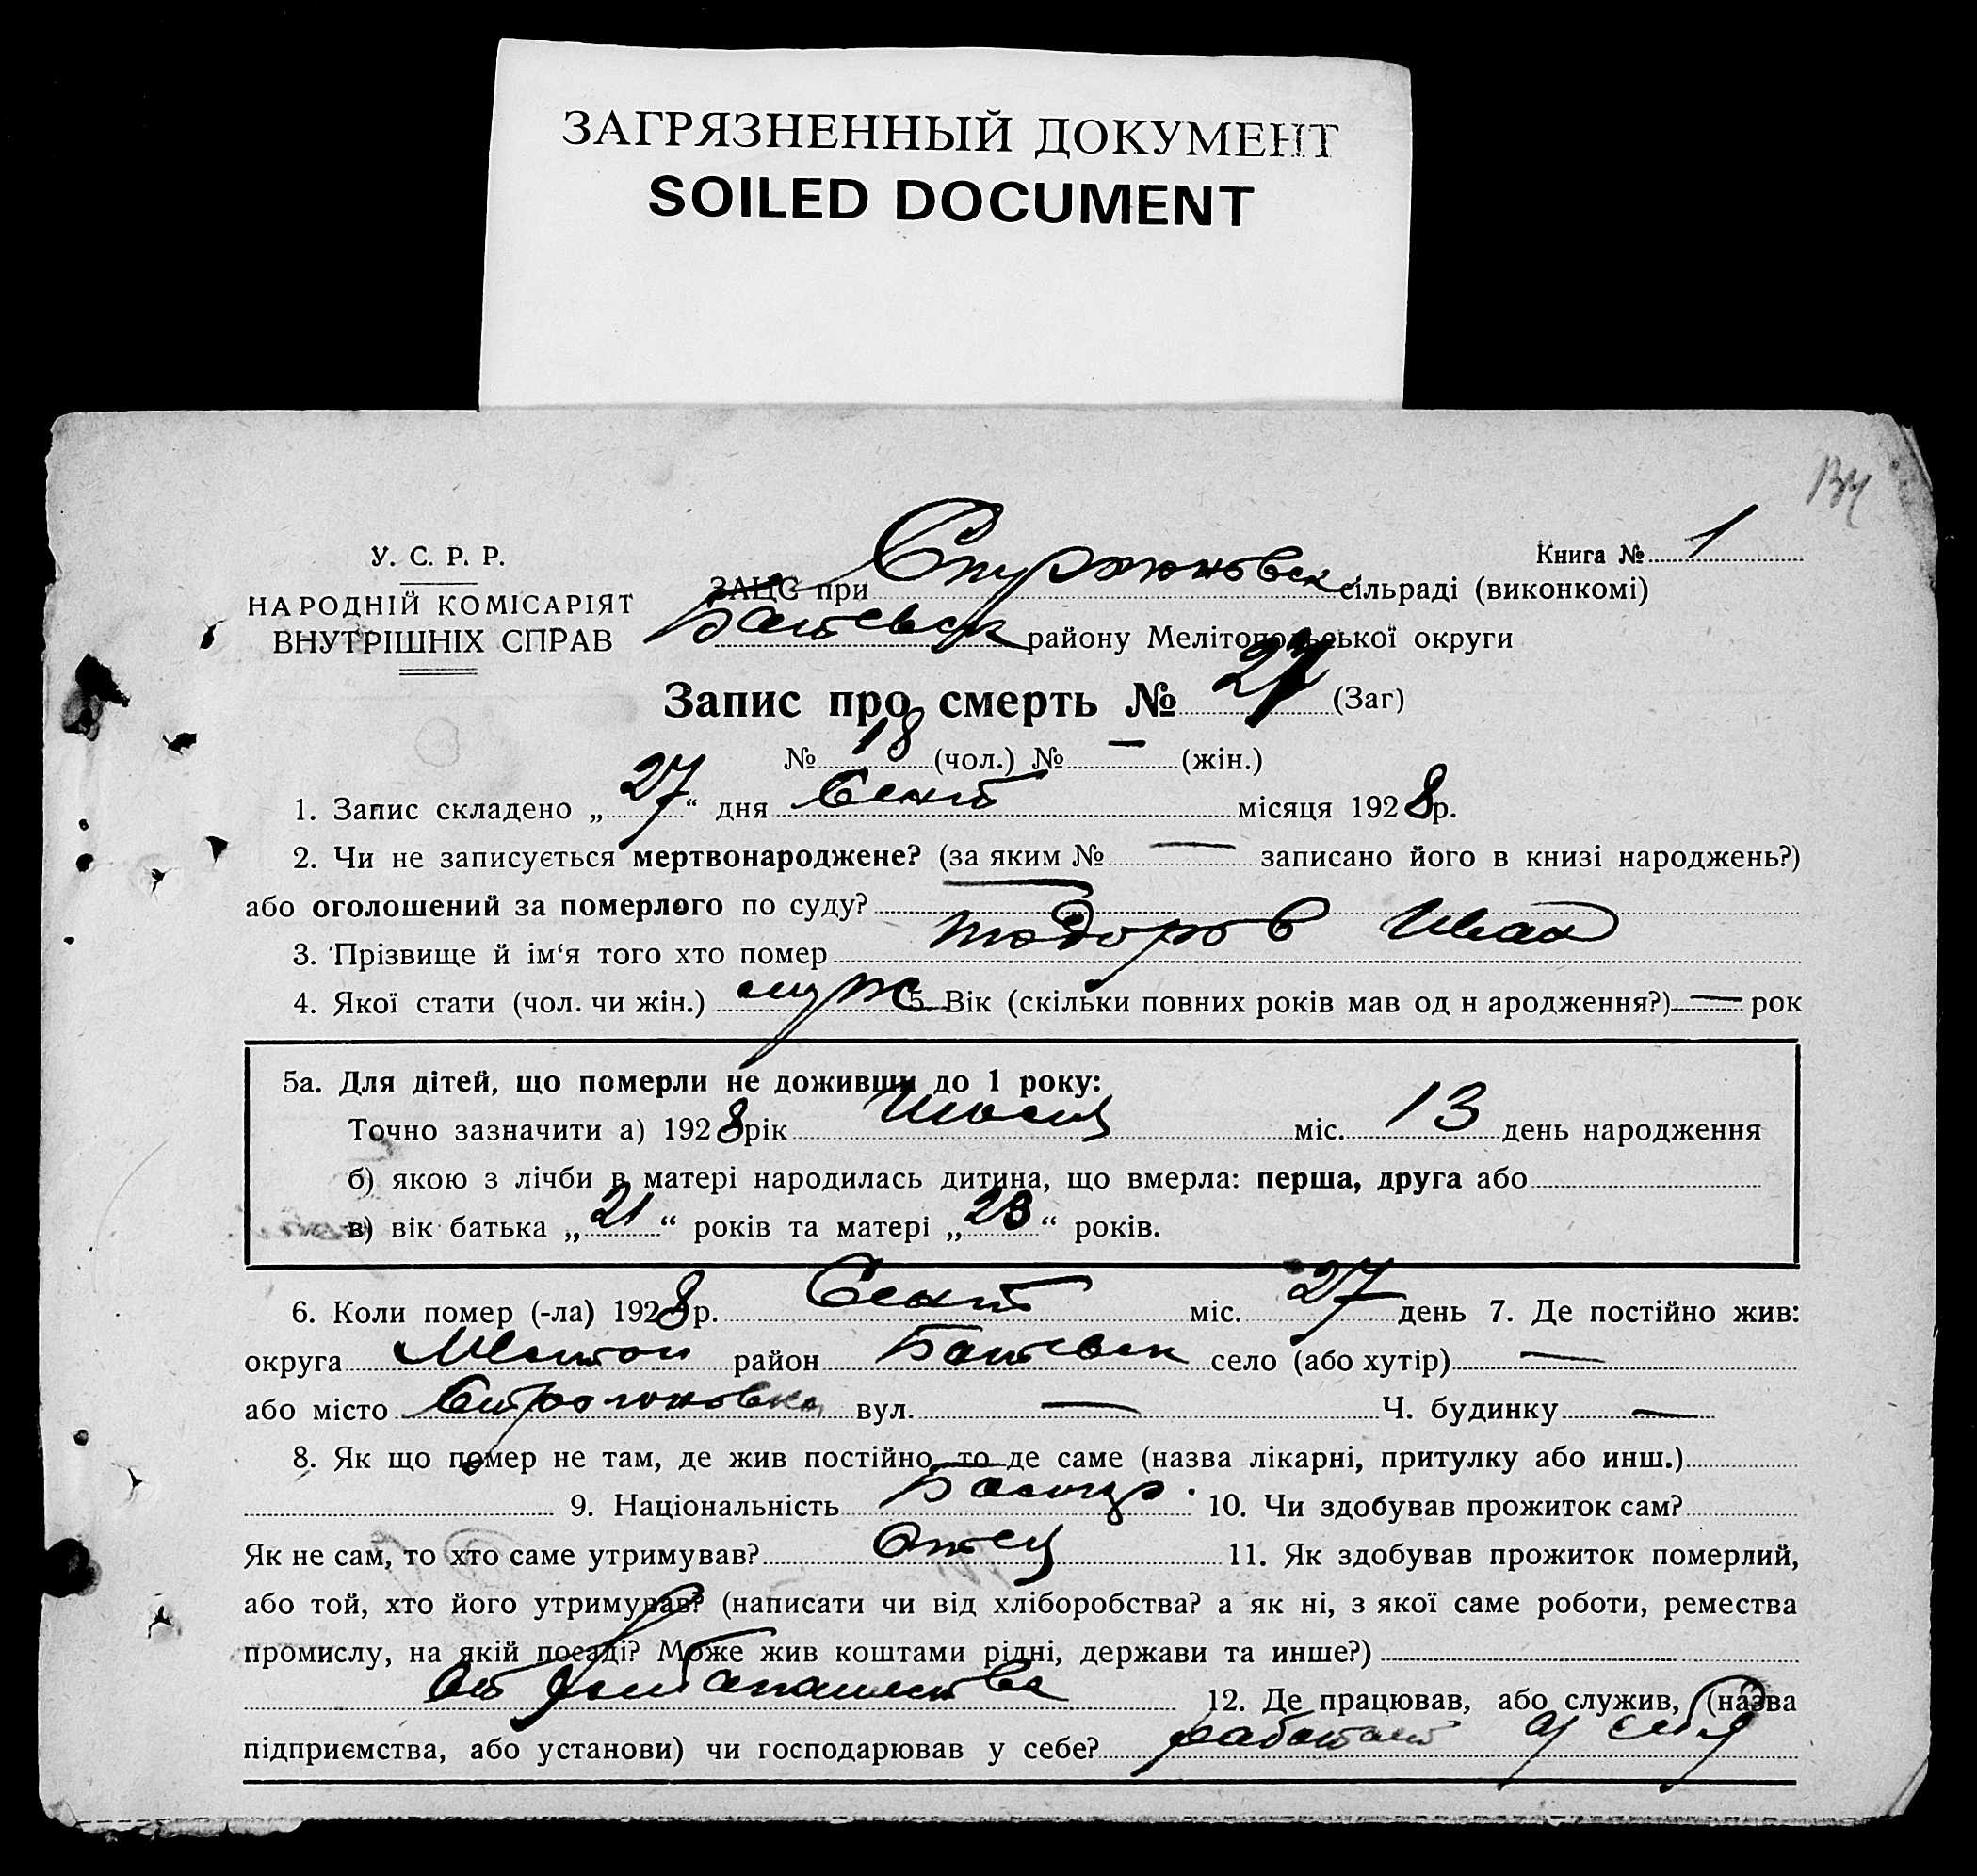 ЗАГРЯЗНЕННЫЙ ДОКУМЕНТ
SOILED DOCUMENT
134
У. С. Р. Р.
НАРОДНІЙ КОМІСАРІЯТ
ВНУТРІШНІХ СПРАВ
Книга № 1
ЗАЦС при сільраді (виконкомі)
району Мелітопольської округи
Запис про смерть № 27 (Заг)
№ 18 (чол.) № — (жін.)
1. Запис складено „27“ дня Сент місяця 1928 р.
2. Чи не записується мертвонароджене? (за яким № — записано його в книзі народжень?)
або оголошений за померлого по суду? —
3. Прізвище й ім‘я того хто помер Тодоров Иван
4. Якої стати (чол. чи жін.) муж 5. Вік (скільки повних років мав од н ародження?) — рок
5а. Для дітей, що померли не доживши до 1 року:
Точно зазначити а) 1928 рік міс. 13 день народження
б) якою з лічби в матері народилась дитина, що вмерла: перша, друга або
в) вік батька „21“ років та матері „23“ років.
6. Коли помер (-ла) 1928 р. Сент міс. 27 день 7. Де постійно жив:
округа Мелитоп район село (або хутір) —
або місто вул. — Ч. будинку —
8. Як що помер не там, де жив постійно, то де саме (назва лікарні, притулку або инш.)
— 9. Національність Болгар. 10. Чи здобував прожиток сам?
Як не сам, то хто саме утримував? Отец 11. Як здобував прожиток померлий,
або той, хто його утримував? (написати чи від хліборобства? а як ні, з якої саме роботи, ремества
промислу, на якій посаді? Може жив коштами рідні, держави та инше?)
От хлебопашества 12. Де працював, або служив, (назва
підприємства, або установи) чи господарював у себе? работает у себя